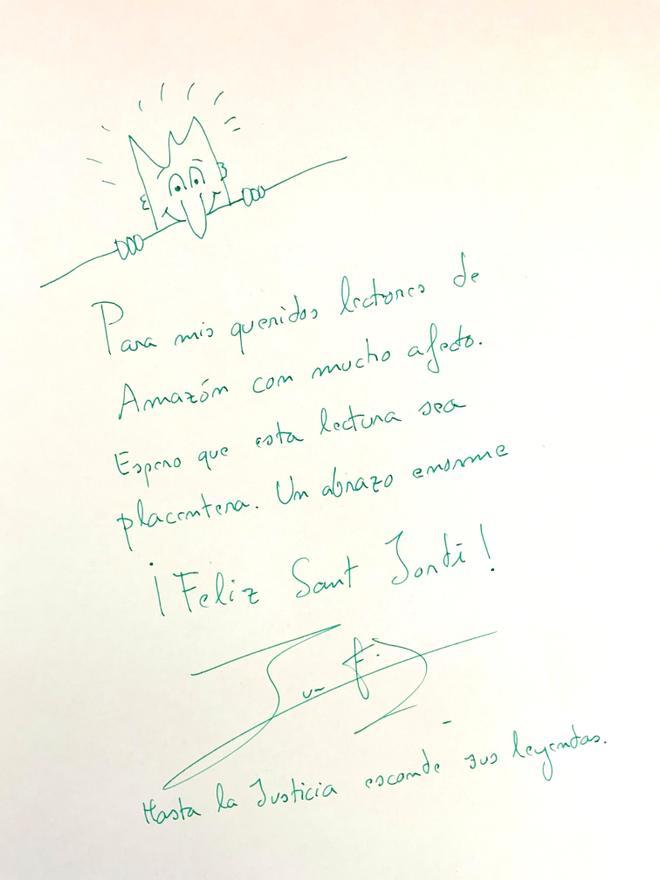 Para mis queridos lectores de
Amazón con mucho afecto.
Espero que esta lectura sea
placentera. Un abrazo enorme
¡Feliz Sant Jordi!
Hasta la Justicia esconde sus leyendas.